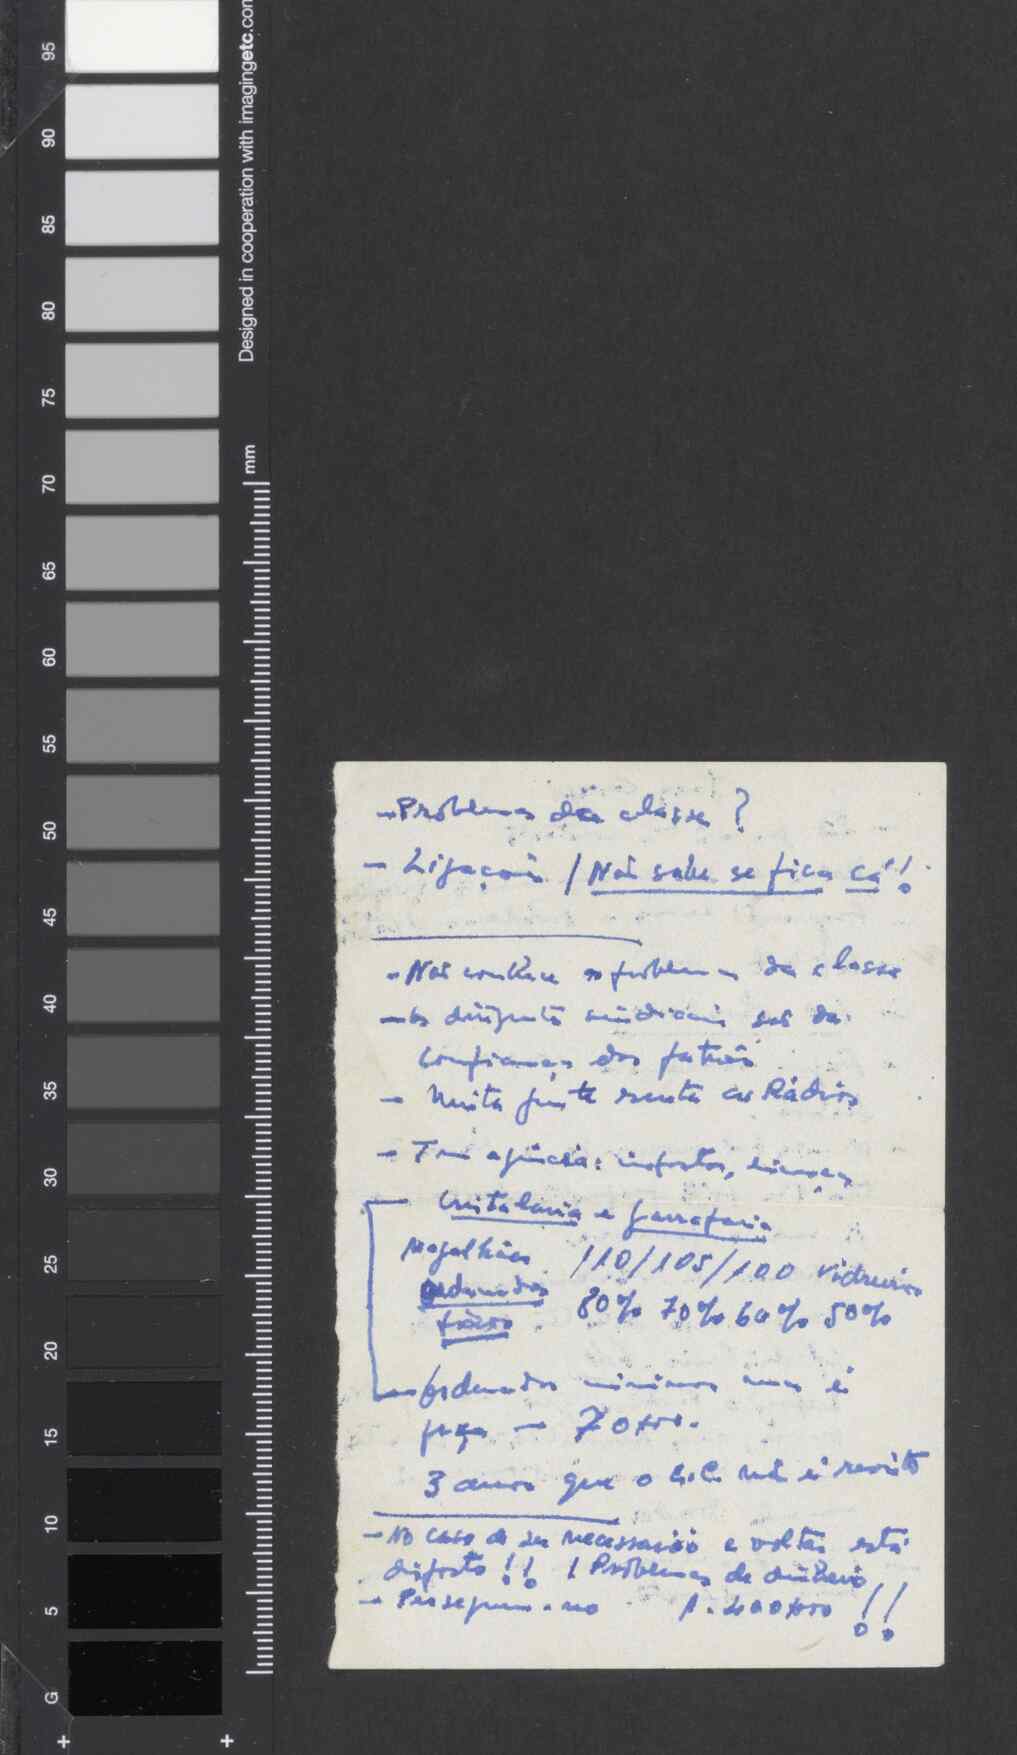 95
90
85
80
75
70
65
60
55
50
45
40
35
30
25
20
15
10
5
G
Designed in cooperation with imagingetc.com
mm
- Problemas da classe ?
- Ligações / Não sabe se fica cá !
- Não conhece os problemas da classe
- Os dirigentes sindicais são da
confiança dos patrões
- Muita gente escuta as Rádios
- Tem agência: impostos, licenças
Cristalaria e garrafaria
Magalhães 110/105/100 vidreiros
ordenados 80% 70% 60% 50%
fixos
- Ordenados mínimos mas é
70$00.
3 anos que o C.C. não é revisto
- No caso de ser necessário e voltar está
disposto !! / Problemas de dinheiro
- Perseguem-no 1.400$00 !!